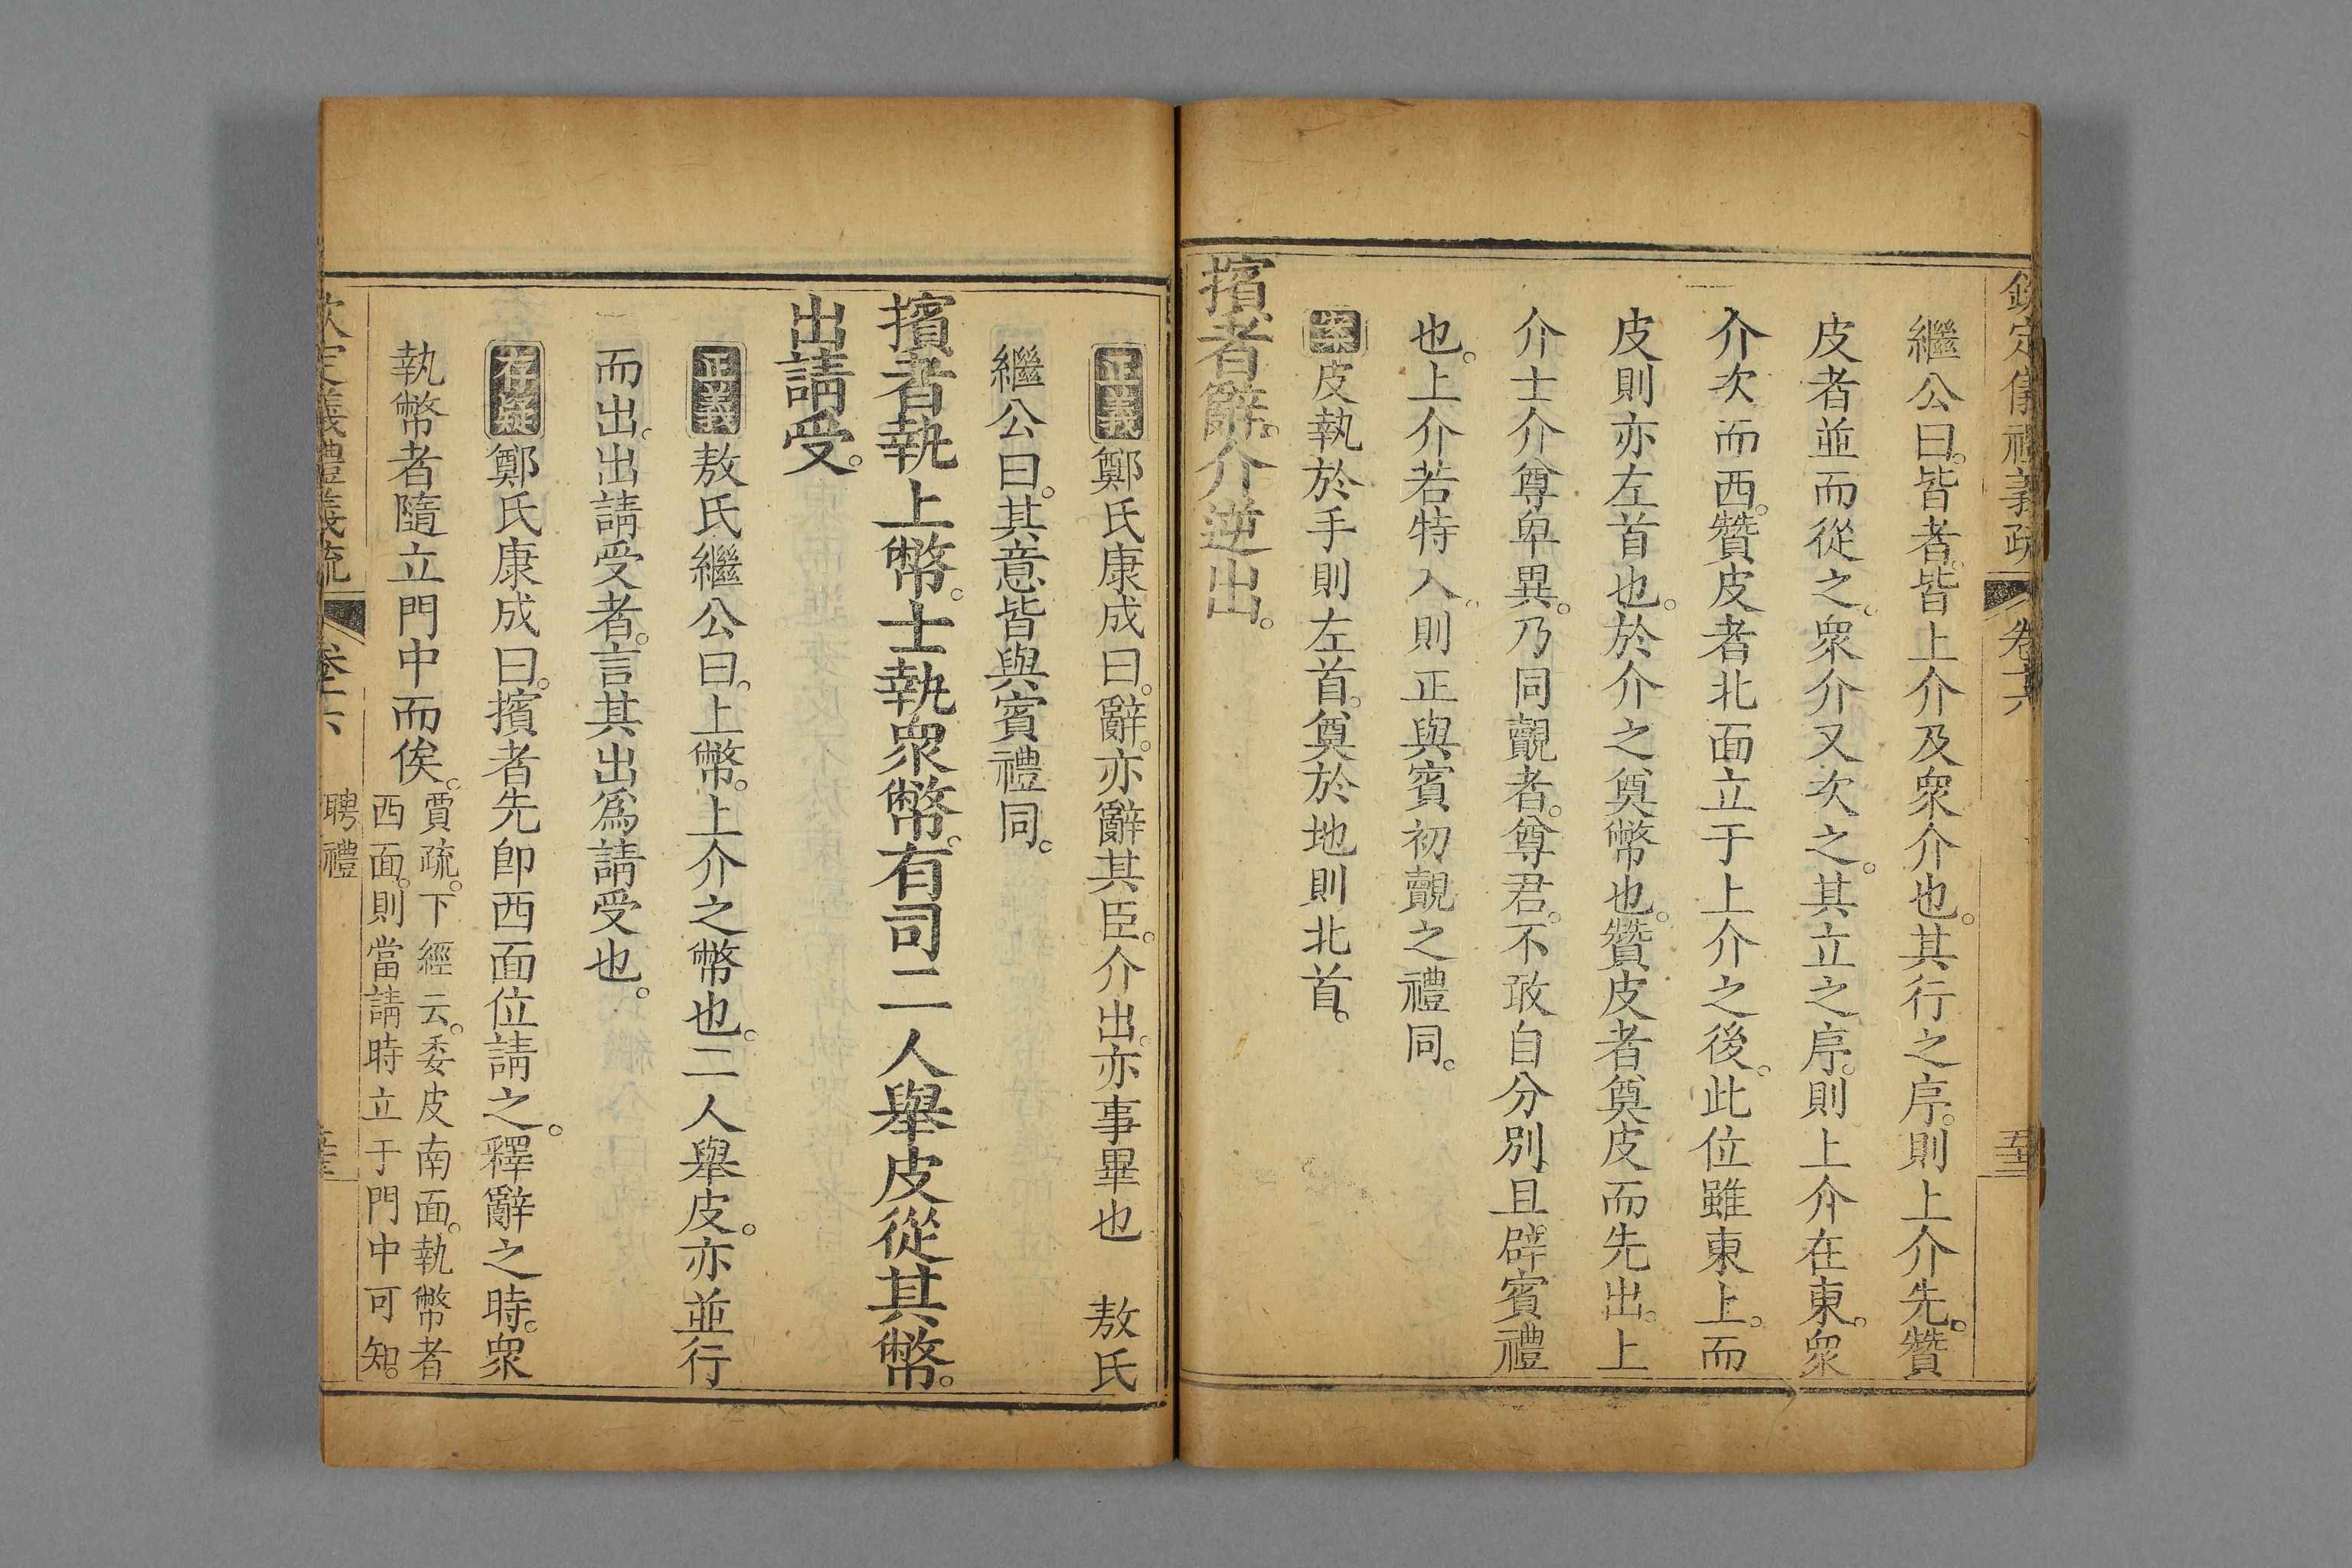 欽定儀禮義疏 卷十六
繼公曰。皆者。皆上介及衆介也。其行之序。則上介先。贊
皮者並而從之。衆介又次之。其立之序。則上介在東。衆
介次而西。贊皮者北面立于上介之後。此位雖東上。而
皮則亦左首也。於介之奠幣也。贊皮者奠皮而先出。上
介士介尊卑異。乃同覿者。尊君。不敢自分別且辟賓禮
也。上介若特入。則正與賓初覿之禮同。
案皮執於手則左首。奠於地則北首。
擯者辭。介逆出。
正義鄭氏康成曰。辭。亦辭其臣。介出。亦事畢也 敖氏
繼公曰。其意皆與賓禮同。
擯者執上幣。士執衆幣。有司二人舉皮從其幣。
出請受。
正義敖氏繼公曰。上幣。上介之幣也。二人舉皮。亦並行
而出。出請受者。言其出爲請受也。
存疑鄭氏康成曰。擯者先卽西面位請之。釋辭之時。衆
執幣者隨立門中而俟。
賈疏。下經云。委皮南面。執幣者
西面。則當請時立于門中可知。
欽定儀禮義疏 卷十六 聘禮